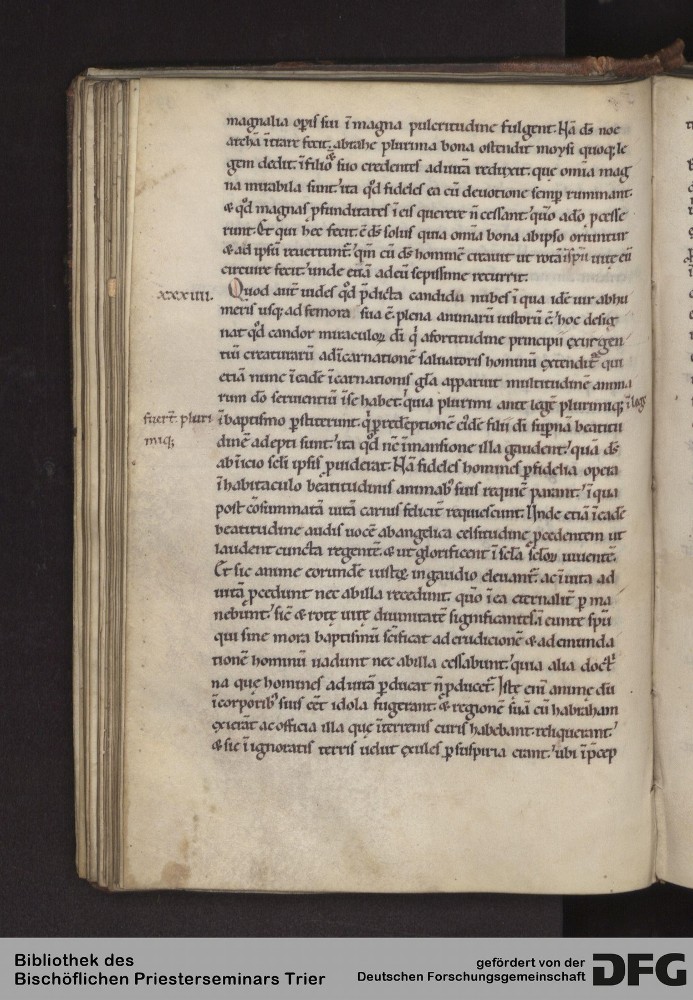 magnalia opis sui ī magna pulcritudine fulgent. Nā ds noe
archā ītrare fecit. abrahe plurima bona ostendit moysi quoq; le
gem dedit. ī filio suo credentes ad uitā reduxit. que omīa mag
na mirabilia sunt. ita qd fideles ea cū deuotione semp ruminant.
& qd magnas pfunditates ī eis querere n̄ cessant. quō a dō pcesse
runt. Et qui hec fecit. ē ds solus quia omīa bona ab ipso oriuntur
& ad ipsū reuertunt. qm̄ cū ds hominē creauit ut rotā
circuire fecit. unde etiā ad eū sepissime recurrit.
xxxiiii. Quod aut uides qd pdicta candida nubes ī qua idē uir ab hu
meris usq; ad femora sua ē. plena animarū iustorū ē. hoc desig
nat qd candor miraculor di q a fortitudine principii exurgen
tiū creaturarū ad īcarnationē saluatoris hominū extendit qui
etiā nunc ī eadē īcarnationis gra apparuit multitudinē anima
rum dō seruientiū ī se habet. quia plurimi ante legē plurimiq; ī lege
fuert. pluri
miq;
ī baptismo pstiterunt. q p redēptionē eide filii di supnā beatitu
dinē adepti sunt. ita qd nē ī mansione illa gaudent. quā ds
ab īicio scli ipsis puiderat. Nā fideles homines p fidelia opera
ī habitaculo beatitudinis animab suis requiē parant. ī qua
post cōsummatā uitā carnis felicit requiescunt. Unde etiā ī eadē
beatitudine audis uocē ab angelica celsitudine pcedentem ut
laudent cuncta regentē. & ut glorificent ī scla sclor uiuentē.
Et sic anime eorunde iustor in gaudio eleuant. ac ī uita ad
uitā pcedunt nec ab illa recedunt. quō ī ea eternalit p ma
nebunt. sic & rote uite diuinitatē significantes ā eunte spū
qui sine mora baptismū scificat ad erudicionē & ad emunda
tionē hominū uadunt nec ab illa cessabunt. quia alia doct
na que homines ad uitā pducat n̄ pducet. Iste eni anime dū
ī corporib suis eēt idola fugerant. & regionē suā cū habraham
exierāt ac officia illa que ī terrenis curis habebant. reliquerant.
& sic ī ignoratis terris uelut exules p suspiria erant. ubi ī pcep
Bibliothek des
Bischöflichen Priesterseminars Trier
gefördert von der
Deutschen Forschungsgemeinschaft
DFG